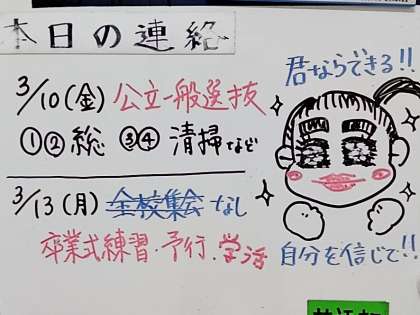 本日の連絡
3/10(金) 公立一般選抜
①②総 ③④清掃など
3/13(月) 全校集会なし
卒業式練習・予行.学活
君ならできる!!
自分を信じて!!